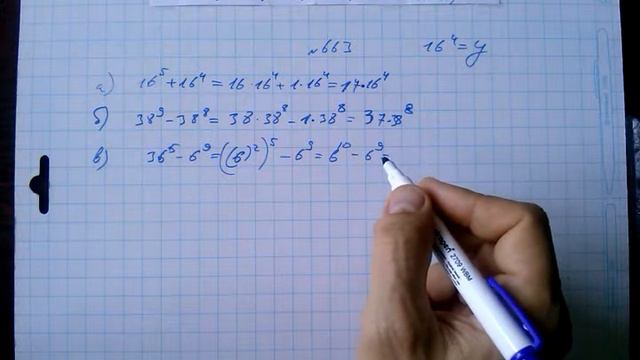 №663 16⁴=y
а) 16⁵+16⁴=16·16⁴+1·16⁴=17·16⁴
б) 38⁹-38⁸=38·38⁸-1·38⁸=37·38⁸
в) 36⁵-6⁹=((6)²)⁵-6⁹=6¹⁰-6⁹=
2709 WBM